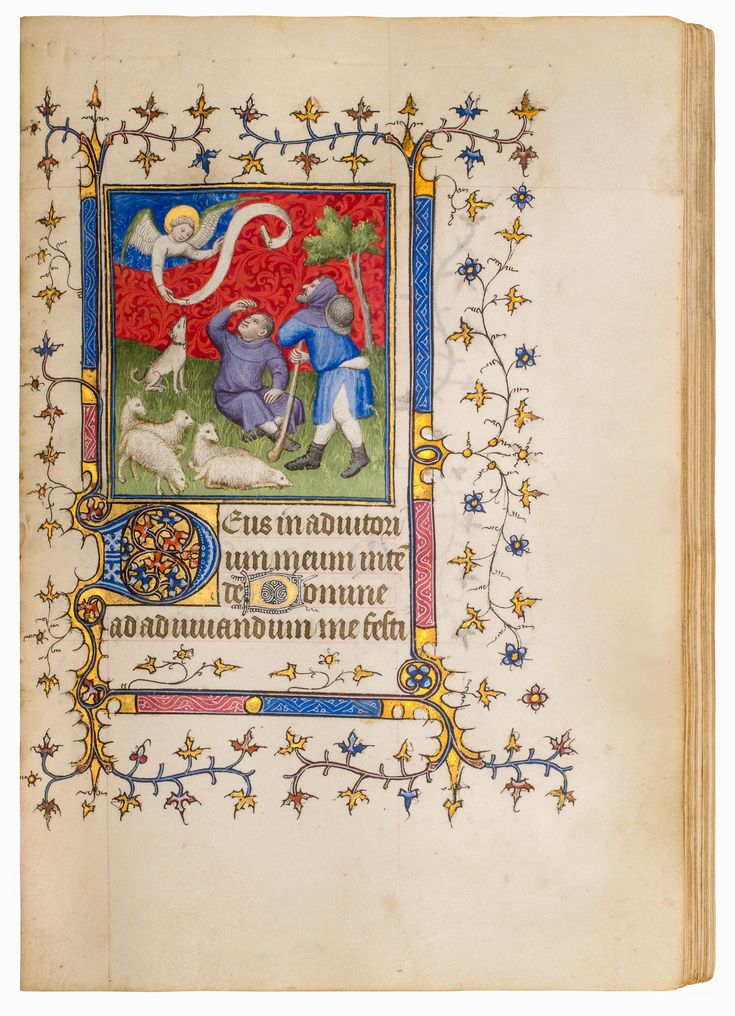 Deus in adiutori
um meum intē
te Domine
ad adiuuandum me festi